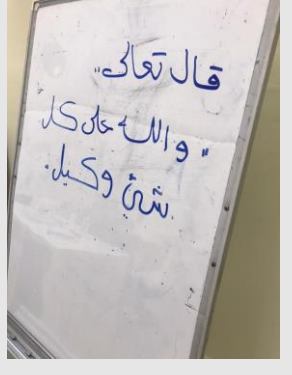 قال تعالى "
" والله على كل
شئ وكيل.